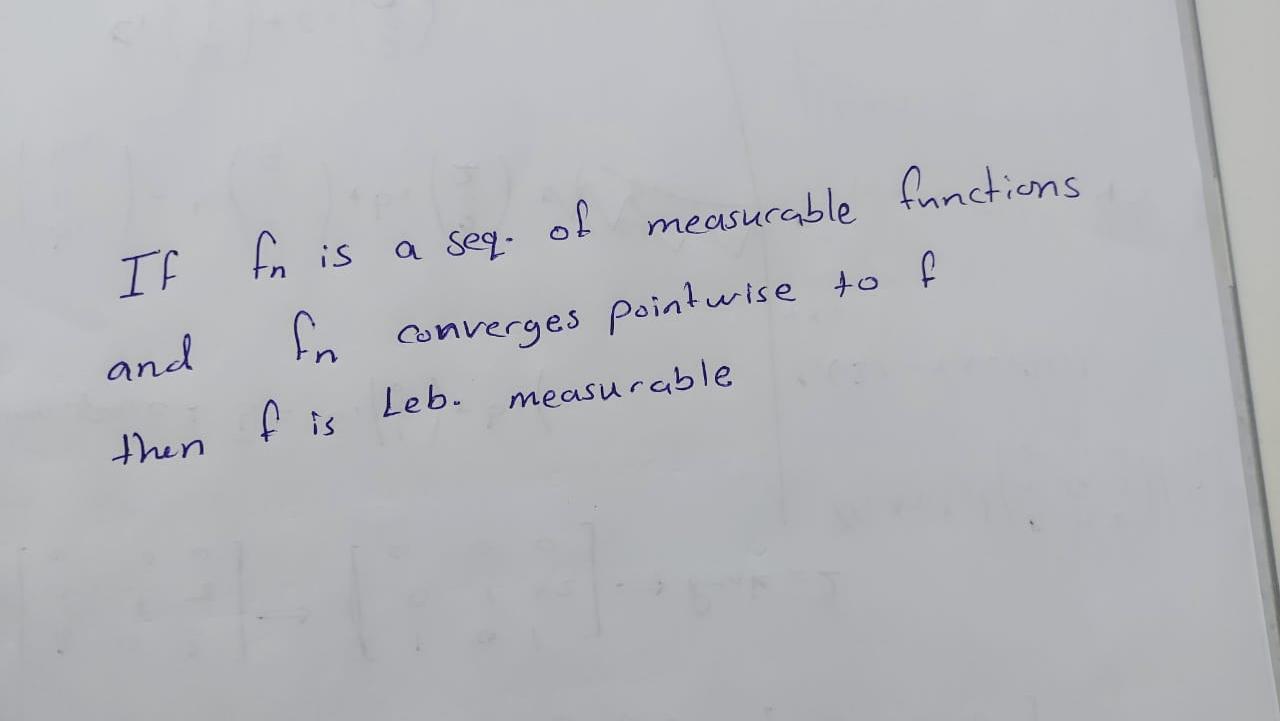 If fn is a seq. of measurable functions
and fn converges pointwise to f
then f is Leb. measurable